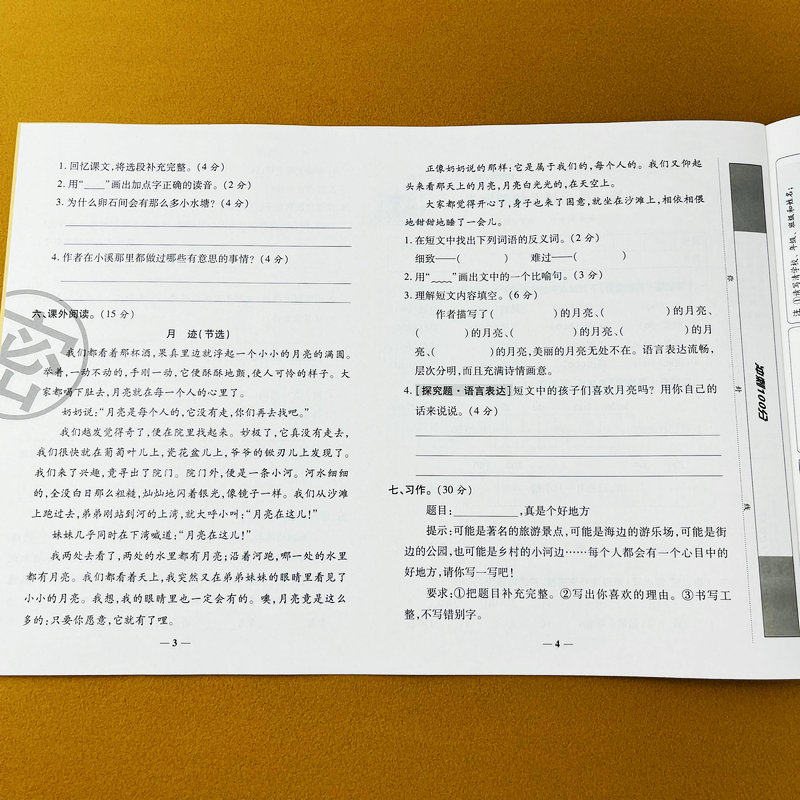 1.回忆课文,将选段补充完整。(4分)
2.用“____”画出加点字正确的读音。(2分)
3.为什么卵石间会有那么多小水塘?(4分)
4.作者在小溪那里都做过哪些有意思的事情?(4分)
六、课外阅读。(15分)
月 迹(节选)
我们都看着那杯酒,果真里边就浮起一个小小的月亮的满圆。
举着,一动不动的,手刚一动,它便酥酥地颤,使人可怜的样子。大
家都喝下肚去,月亮就在每一个人的心里了。
奶奶说:“月亮是每个人的,它没有走,你们再去找吧。”
我们越发觉得奇了,便在院里找起来。妙极了,它真没有走去,
我们很快就在葡萄叶儿上,瓷花盆儿上,爷爷的锨刃儿上发现了。
我们来了兴趣,竟寻出了院门。院门外,便是一条小河。河水细细
的,全没白日那么粗糙,灿灿地闪着银光,像镜子一样。我们从沙滩
上跑过去,弟弟刚站到河的上湾,就大呼小叫:“月亮在这儿!”
妹妹几乎同时在下湾喊道:“月亮在这儿!”
我两处去看了,两处的水里都有月亮;沿着河跑,哪一处的水里
都有月亮。我们都看着天上,我突然又在弟弟妹妹的眼睛里看见了
小小的月亮。我想,我的眼睛里也一定会有的。噢,月亮竟是这么
多的:只要你愿意,它就有了哩。
— 3 —
密
正像奶奶说的那样:它是属于我们的,每个人的。我们又仰起
头来看那天上的月亮,月亮白光光的,在天空上。
大家都觉得开心了,身子也来了困意,就坐在沙滩上,相依相偎
地甜甜地睡了一会儿。
1.在短文中找出下列词语的反义词。(2分)
细致——( ) 难过——( )
2.用“﹏﹏”画出文中的一个比喻句。(3分)
3.理解短文内容填空。(6分)
作者描写了( )的月亮、( )的月亮、
( )的月亮、( )的月亮、( )的月
亮、( )的月亮,美丽的月亮无处不在。语言表达流畅,
层次分明,而且充满诗情画意。
4.[探究题·语言表达]短文中的孩子们喜欢月亮吗?用你自己的
话来说说。(4分)
七、习作。(30分)
题目:__________,真是个好地方
提示:可能是著名的旅游景点,可能是海边的游乐场,可能是街
边的公园,也可能是乡村的小河边……每个人都会有一个心目中的
好地方,请你写一写吧!
要求:①把题目补充完整。②写出你喜欢的理由。③书写工
整,不写错别字。
— 4 —
密
封
线
冲刺100分
注:①请写清学校、年级、班级和姓名;